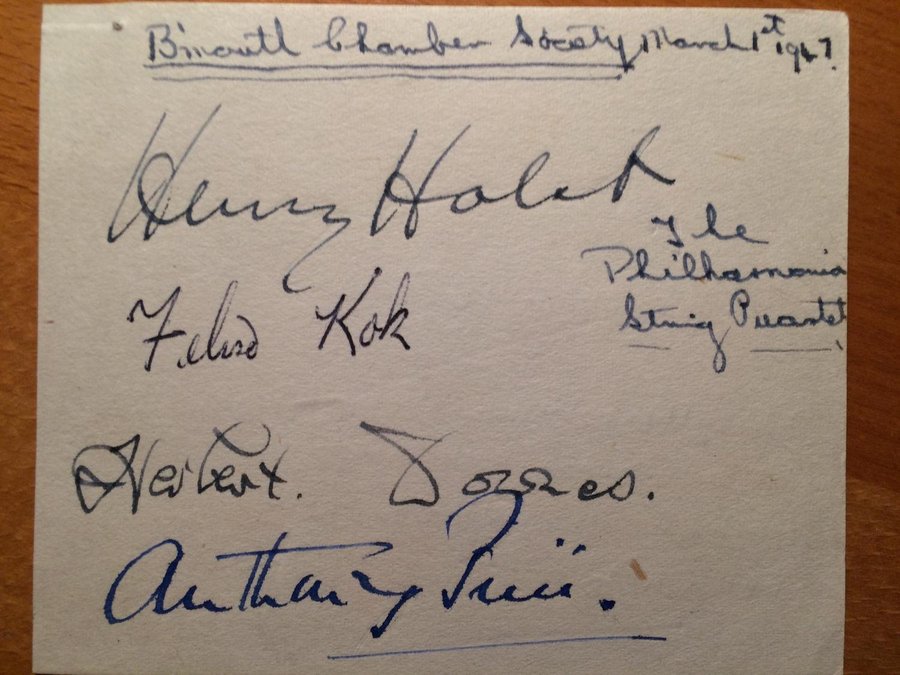 B'mouth Chamber Society March 1st 1947.
Henry Holst
The
Philharmonia
String Quartet
Felix Kok
Herbert Downes.
Anthony Pini.